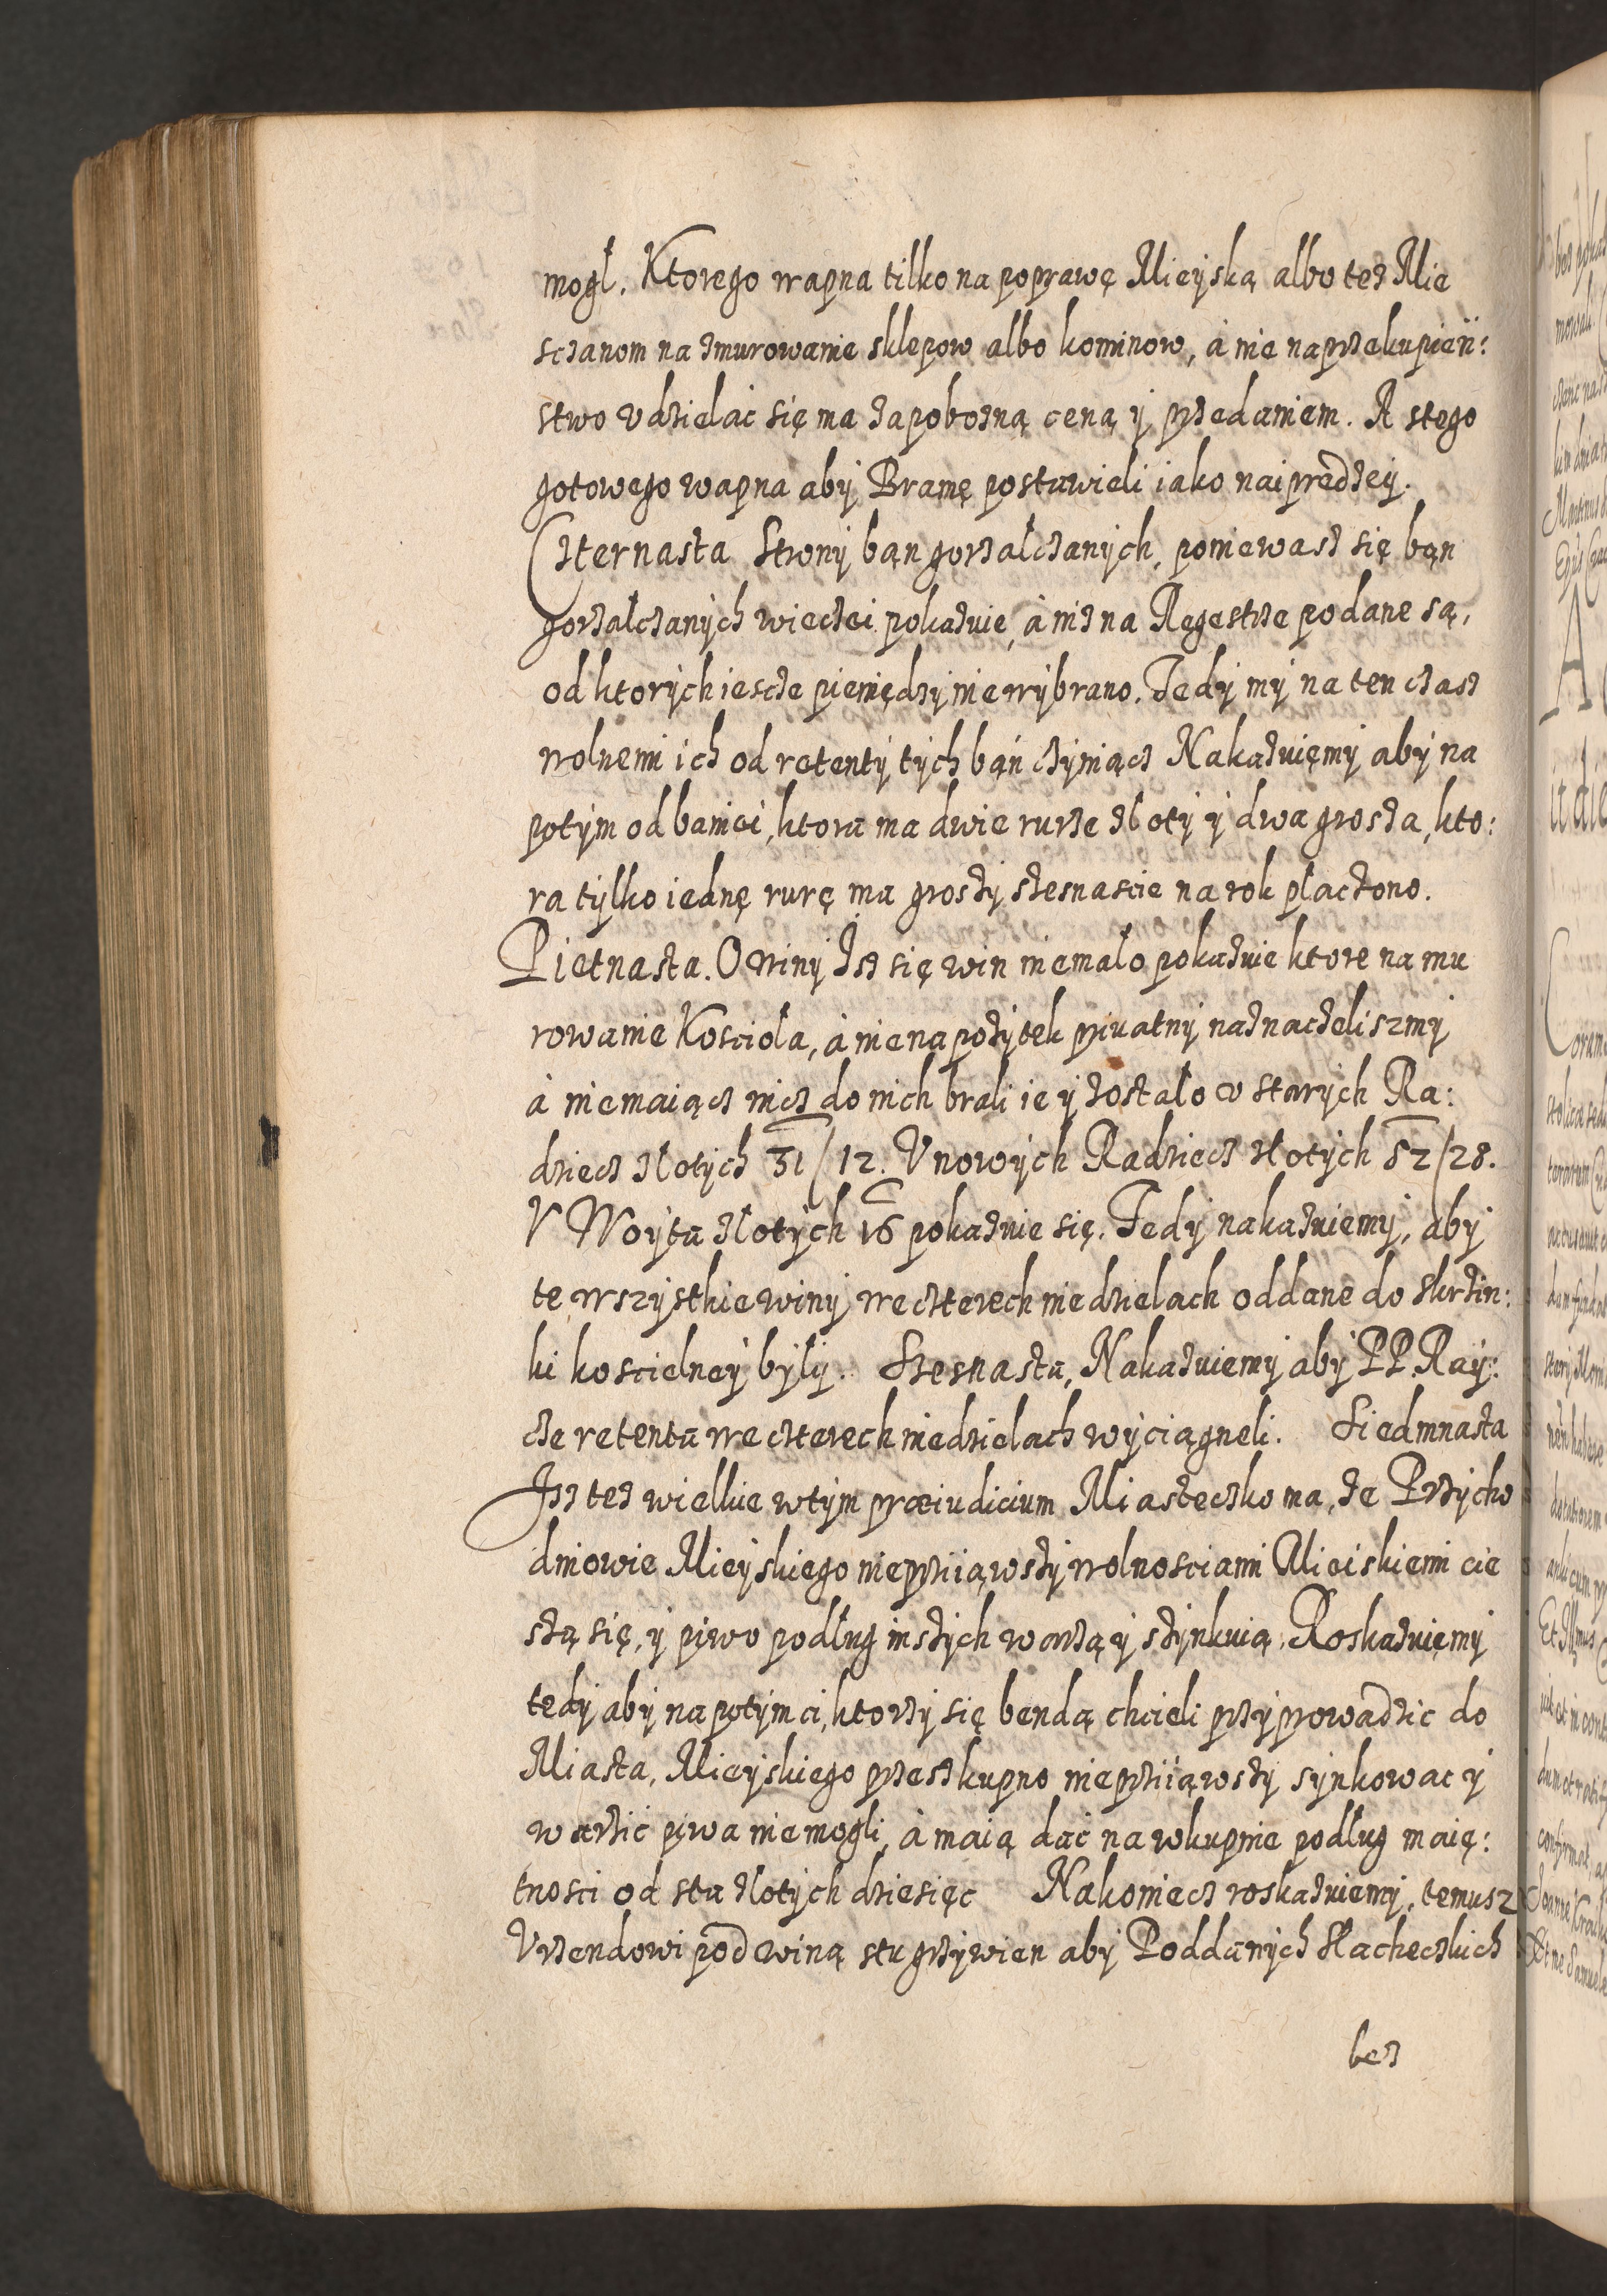 mogl. Ktorego wapna tilko na poprawę Mieyską albo tez Mie
sczanom na zmurowanie sklepow albo kominow, á nie na przekupień:
stwo udzielac się ma za pobozną ceną ÿ przedaniem. A stego
gotowego wapna abÿ Bramę postawieli iako naiprędzeÿ.
Czternasta Stronÿ bąn gorzalczanÿch, poniewasz się bąn
gorzalczanÿch wieczei pokazuie, á niz na Regestrze podane są,
od ktorÿch iescze pieniędzÿ nie wÿbrano. Tedÿ mÿ na ten czasz
wolnemi ich od retentÿ tÿch bąń czÿniącz Nakazuięmÿ abÿ na
potÿm od baniei, ktora ma dwie rurze złotÿ ÿ dwa grosza, kto:
ra tÿlko iednę rurę ma groszÿ szesnascie na rok płaczono.
Pietnasta. O winÿ Isz się win niemalo pokazuie ktore na mu
rowanie Kosciola, á nie na pozÿtek priuatnÿ naznaczeliszmÿ
á niemaiącz nicz do nich brali ie ÿ zostało v starÿch Ra:
dziecz złotÿch 31/12. V nowÿch Radziecz złotÿch 52/28.
V Woÿta złotÿch 16 pokazuie się. Tedÿ nakazuiemÿ, abÿ
te wszÿstkie winÿ we czterech niedzielach oddane do skrzin:
ki koscielneÿ bÿlÿ. Szesnasta, Nakazuiemÿ abÿ PP. Raÿ:
cze retenta we czterech niedzielach wÿciągneli. Siedmnasta
Isz tez wielkie wtÿm præiudicium Miasteczko ma, ze Przÿcho
dniowie Mieÿskiego nieprziiąwszÿ wolnosciami Mieiskiemi cie
szą się, ÿ piwo podług inszÿch warzą ÿ szÿnkuią. Roskazuięmÿ
tedÿ abÿ na potÿm ci, ktorzÿ się bendą chcieli przÿprowadzic do
Miasta, Mieÿskiego przeszkupno nieprziiąwszÿ sÿnkowac ÿ
warzic piwa nie mogli, á maią dac na wkupnie podlug maię:
tnosci od sta złotÿch dziesięc Nakoniecz roskazuiemÿ, temusz
Vrzendowi pod winą stu grzÿwien abÿ Poddanÿch Slacheczkich
bez